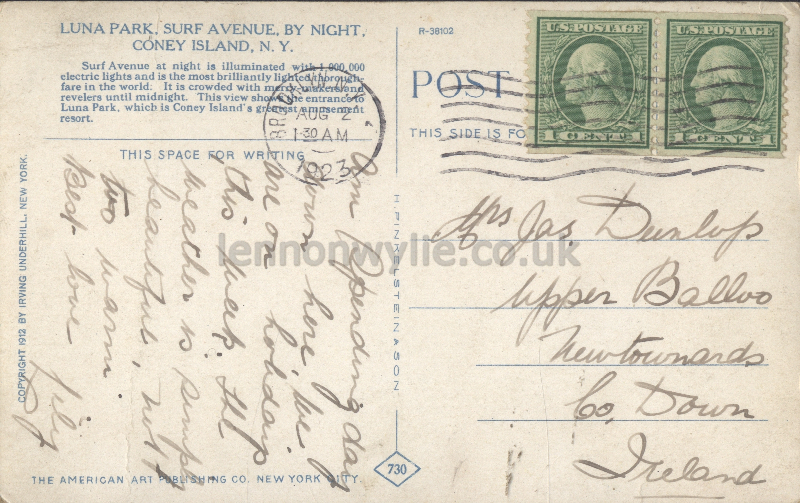 LUNA PARK, SURF AVENUE, BY NIGHT,
CONEY ISLAND, N. Y.
Surf Avenue at night is illuminated with 1,000,000
electric lights and is the most brilliantly lighted thorough-
fare in the world. It is crowded with merry-makers and
revelers until midnight. This view shows the entrance to
Luna Park, which is Coney Island's greatest amusement
resort.
THIS SPACE FOR WRITING
Am spending day
down here, we
are on holidays
this week, the
weather is simply
beautiful, not
too warm.
Best love Lily
COPYRIGHT 1912 BY IRVING UNDERHILL, NEW YORK.
THE AMERICAN ART PUBLISHING CO. NEW YORK CITY.
H. FINKELSTEIN & SON
730
R-38102
POST
THIS SIDE IS FO
U.S. POSTAGE
1 CENT 1
U.S. POSTAGE
1 CENT 1
AUG 2
1-30 AM
1923
Mrs Jas. Dunlop
Upper Balloo
Newtownards
Co, Down
Ireland
lennonwylie.co.uk